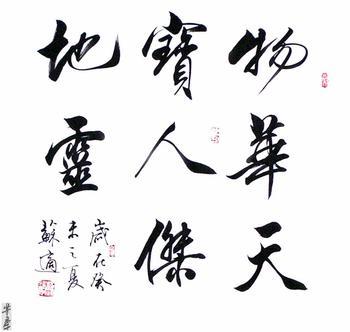 物華天
寶人傑
地靈
歲在癸
未之夏
蘇適